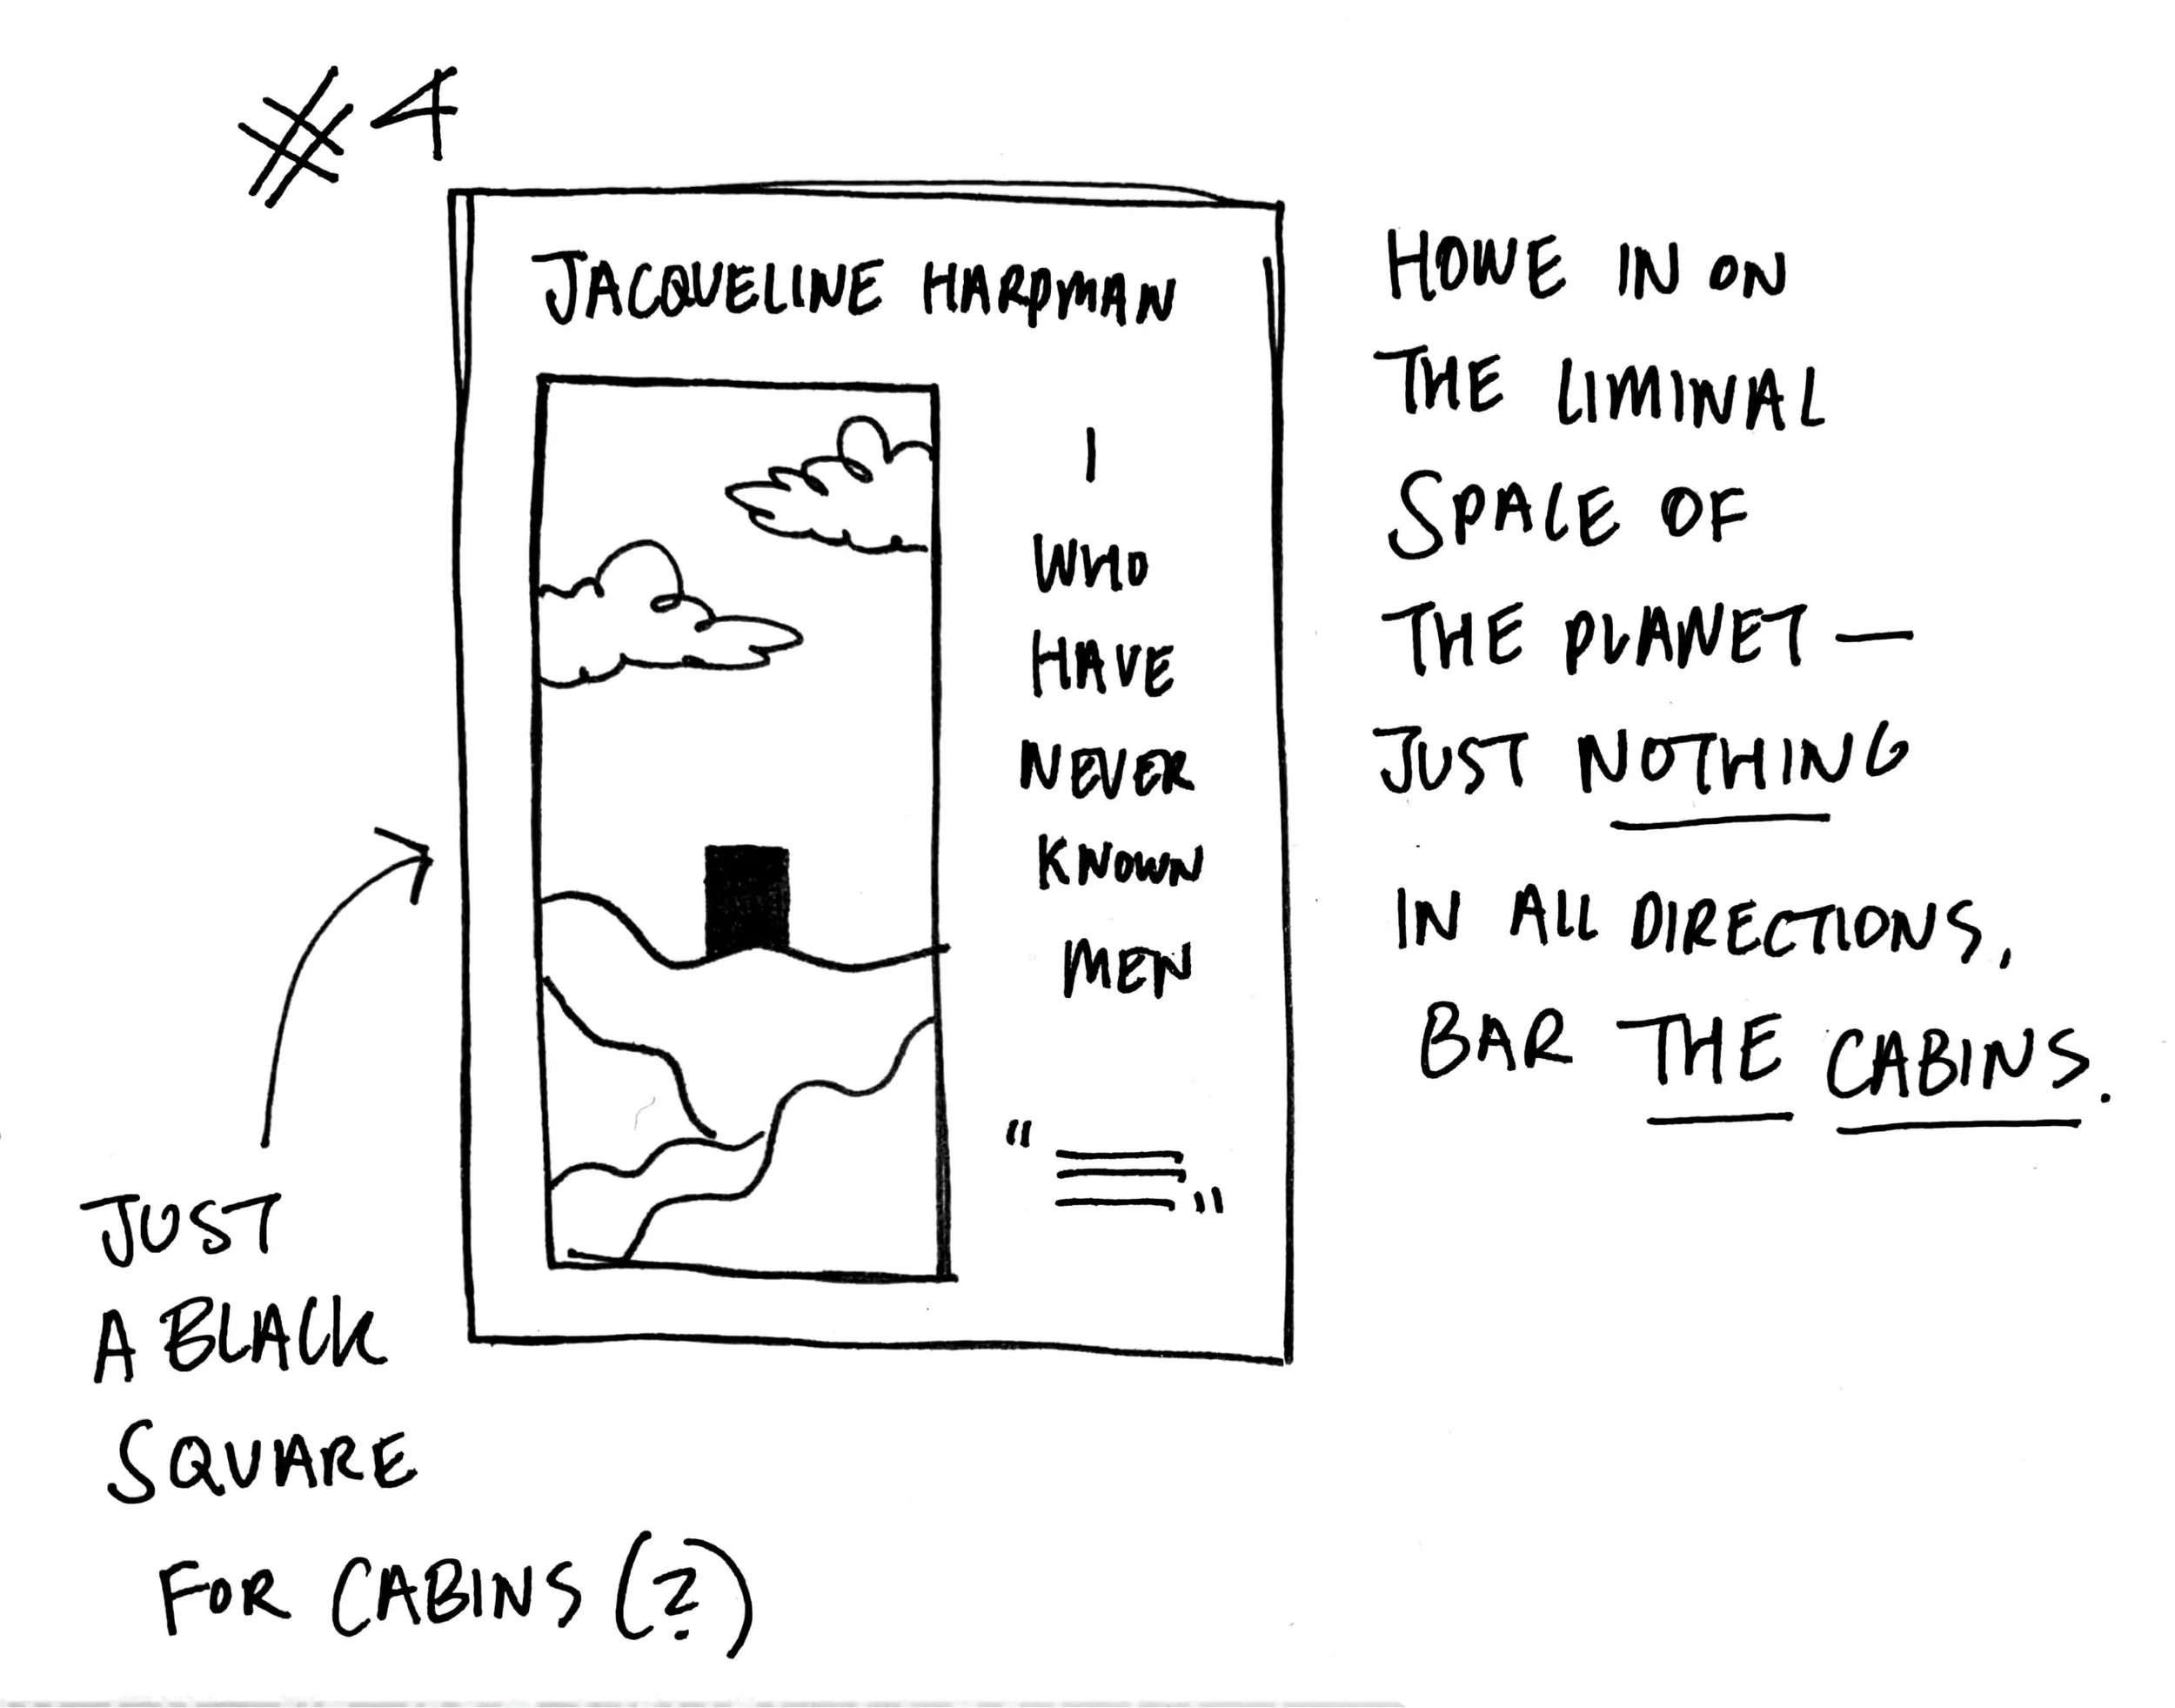 #4
JACQUELINE HARPMAN
I
WHO
HAVE
NEVER
KNOWN
MEN
“ ”
HOWE IN ON
THE LIMINAL
SPACE OF
THE PLANET —
JUST NOTHING
IN ALL DIRECTIONS,
BAR THE CABINS.
JUST
A BLACK
SQUARE
FOR CABINS (?)